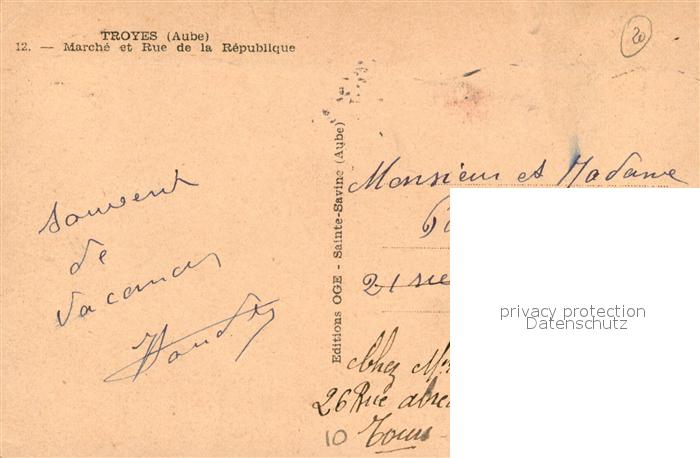 TROYES (Aube)
12. — Marché et Rue de la République
20
souvenir
de
vacances
Editions OGE - Sainte-Savine (Aube)
Monsieur et Madame
21 rue
Chez Mr
26 Rue
10
Tours
privacy protection
Datenschutz